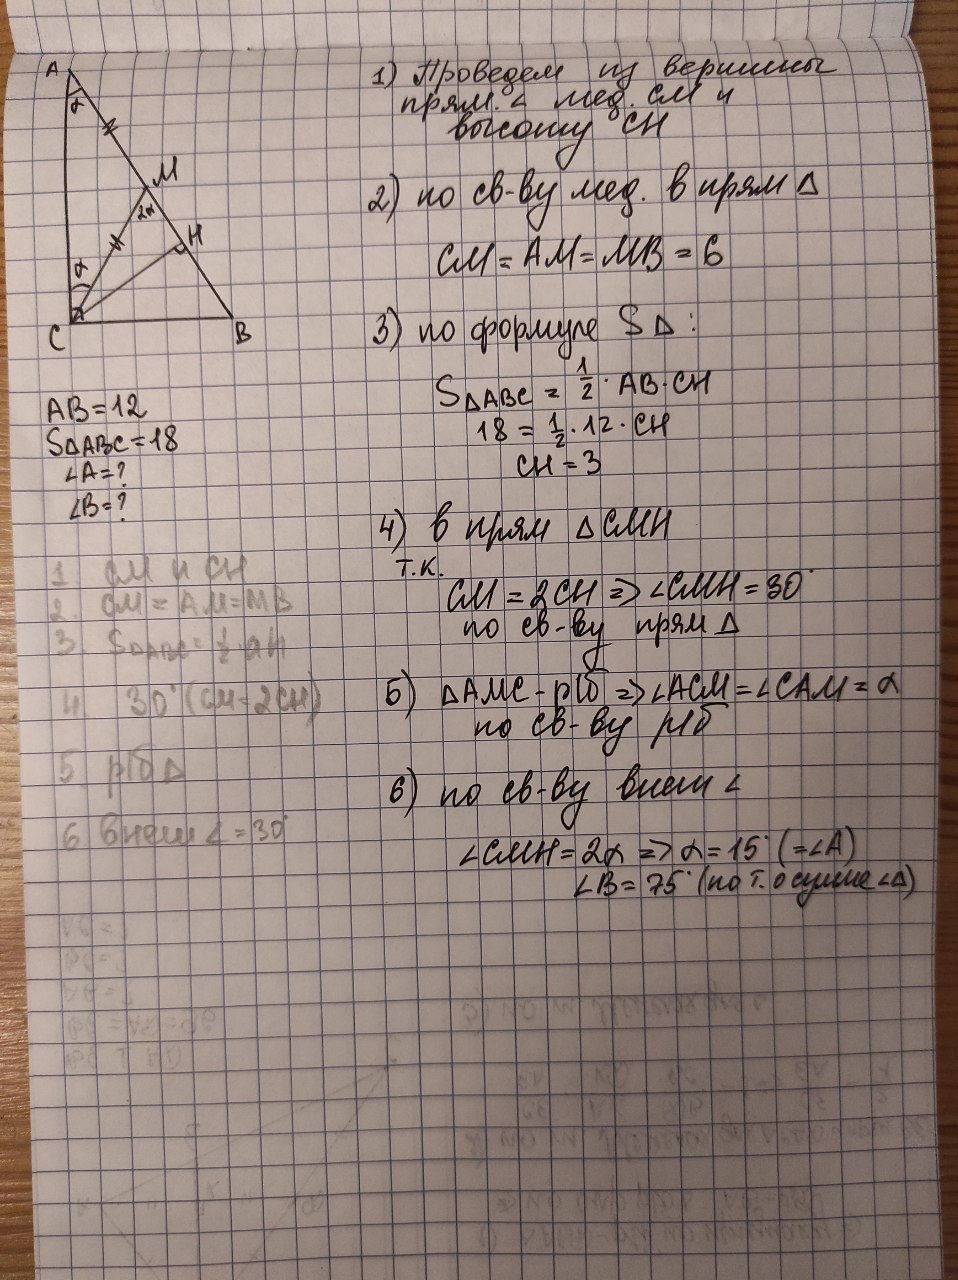 A
α
M
2α
H
α
C
B
AB = 12
S△ABC = 18
∠A = ?
∠B = ?
1. CM и CH
2. CM = AM = MB
3. S△ABC = ½·ah
4. 30° (CM = 2CH)
5. р/б △
6 внеш ∠ = 30°
1) Проведем из вершины
прям. ∠ мед. CM и
высоту CH
2) по св-ву мед. в прям △
CM = AM = MB = 6
3) по формуле S△:
S△ABC = 1/2 · AB · CH
18 = 1/2 · 12 · CH
CH = 3
4) в прям △CMH
т.к.
CM = 2CH => ∠CMH = 30°
по св-ву прям △
5) △AMC - р/б => ∠ACM = ∠CAM = α
по св-ву р/б
6) по св-ву внеш ∠
∠CMH = 2α => α = 15° (= ∠A)
∠B = 75° (по т. о сумме ∠△)